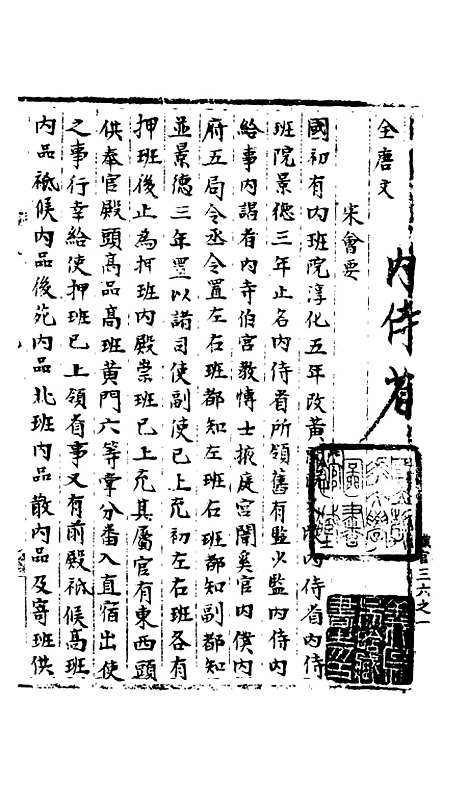 內侍省
職官三六之一
全唐文
宋會要
國初有內班院淳化五年改黃內侍省內侍
班院景德三年止名內侍省所領舊有監火監內侍內
給事內謁者內寺伯宮教博士掖庭宮闈奚官內僕內
府五局令丞今置左右班都知左班右班都知副都知
並景德三年置以諸司使副使已上充初左右班各有
押班後止為押班內殿崇班已上充其屬官有東西頭
供奉官殿頭高品高班黃門六等掌分番入直宿出使
之事行幸給使押班已上領省事又有前殿祗候高班
內品祗候內品後苑內品北班內品散內品及寄班供